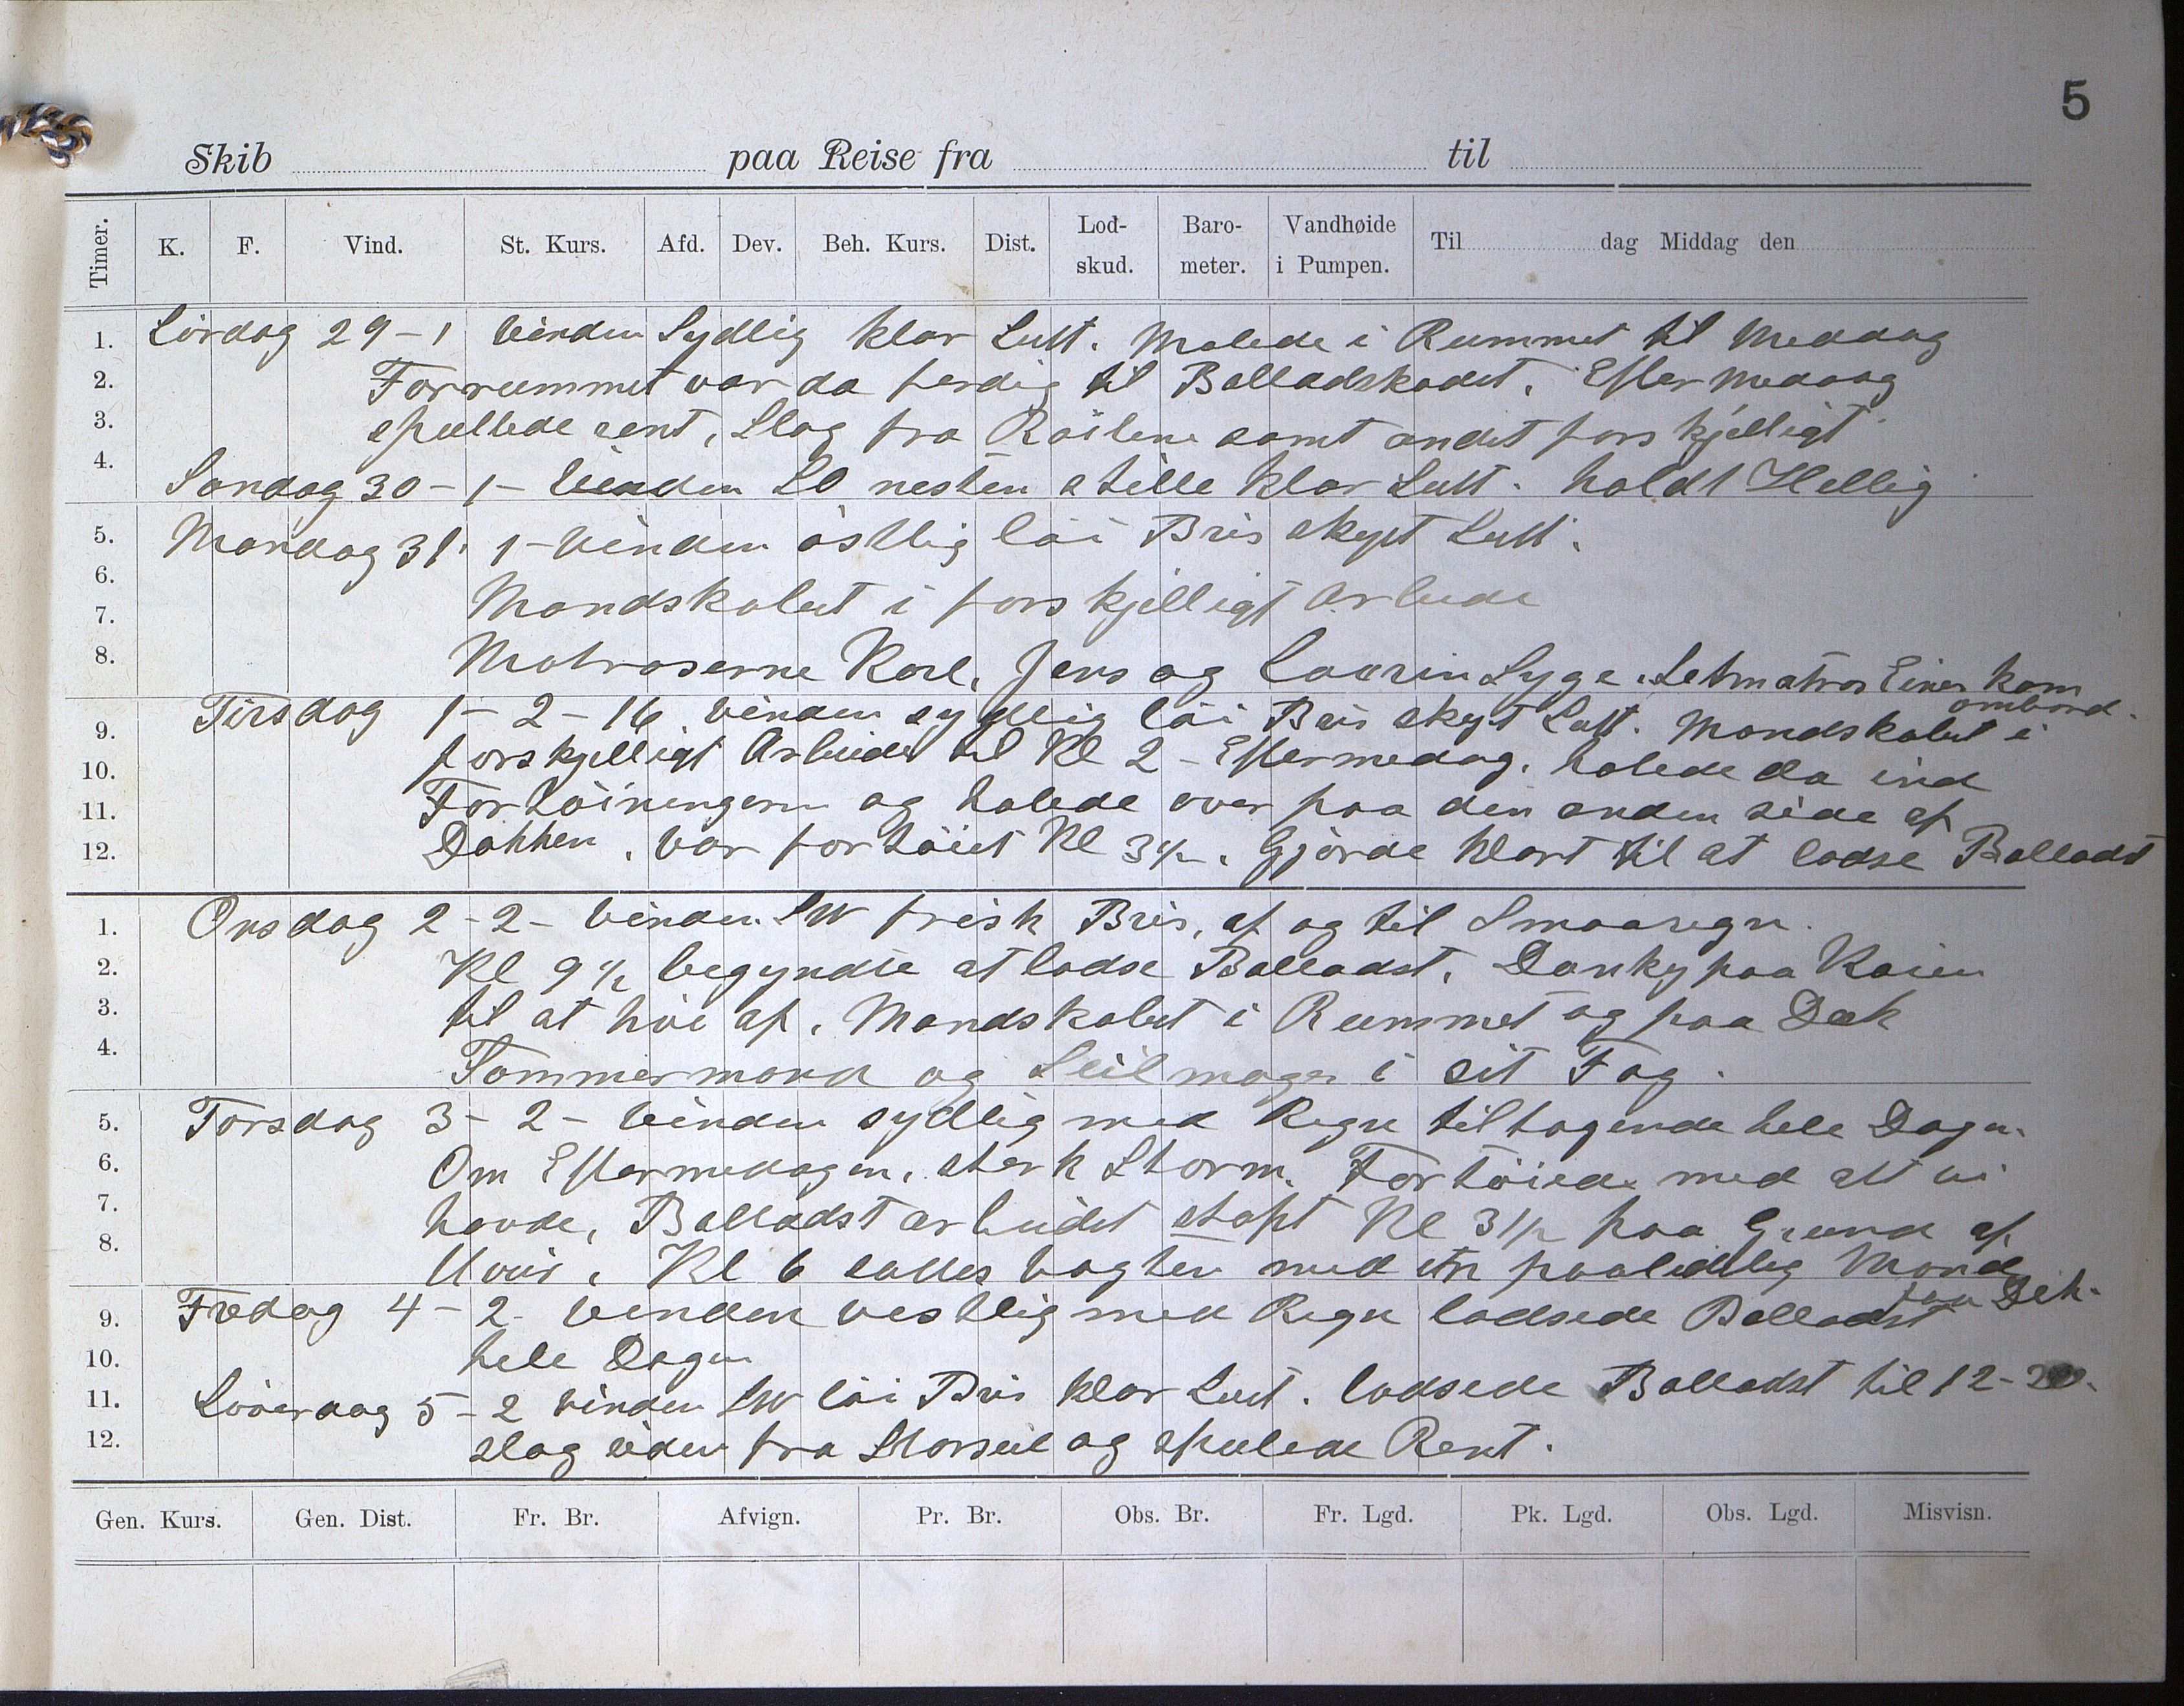 5
Skib paa Reise fra til
Timer. K. F. Vind. St. Kurs. Afd. Dev. Beh. Kurs. Dist. Lod-skud. Baro-meter. Vandhøide i Pumpen. Til dag Middag den
1. Lördag 29-1 Vinden Sydlig klar Luft. Malede i Rummet til Meddag
2. Forrummet var da ferdig til Balladskadet. Efter Medaag
3. spullede rent, Slog fra Röilene samt andet forskjelligt
4. Sondag 30-1- Vinden SO nesten stille klar Luft. holdt Hellig
5. Mandag 31 1- Vinden östlig löi Bris skyet Luft.
6. Mandskabet i forskjelligt Arbeide
7.
8. Matroserne Karl, Jens og Laurin Syge. Letmatros Einer kom ombord.
9. Tirsdag 1-2-16 Vinden sydlig löi Bris skyet Luft. Mandskabet i
10. forskjelligt Arbeide til Kl 2 - Eftermedag. halede da ind
11. Fortöiningern og halede over paa den anden side af
12. Dokken. var fortöiet Kl 3½. Gjörde klart til at ladse Balladst
1. Onsdag 2-2- Vinden SW frisk Bris, af og til Smaaregn.
2. Kl 9½ begyndte at ladse Balladst. Donky paa Kaien
3. til at hive af. Mandskabet i Rummet og paa Dæk
4. Tommermand og Seilmager i sit Fag.
5. Torsdag 3-2- Vinden sydlig med Regn tiltagende hele Dagen.
6. Om Eftermedagen. sterk Storm. Fortöiede med alt vi
7. havde, Balladst arbeidet stopt Kl 3½ paa Grund af
8. Uveir. Kl 6 sattes vagten med en paalidelig Mand paa Dek.
9. Fredag 4-2- Vinden vestlig med Regn ladsede Balladst
10. hele Dagen
11. Löverdag 5-2 Vinden SW löi Bris klar Luft. ladsede Balladst til 12-
12. slog siden fra Storseil og spulede Rent.
Gen. Kurs. Gen. Dist. Fr. Br. Afvign. Pr. Br. Obs. Br. Fr. Lgd. Pk. Lgd. Obs. Lgd. Misvisn.